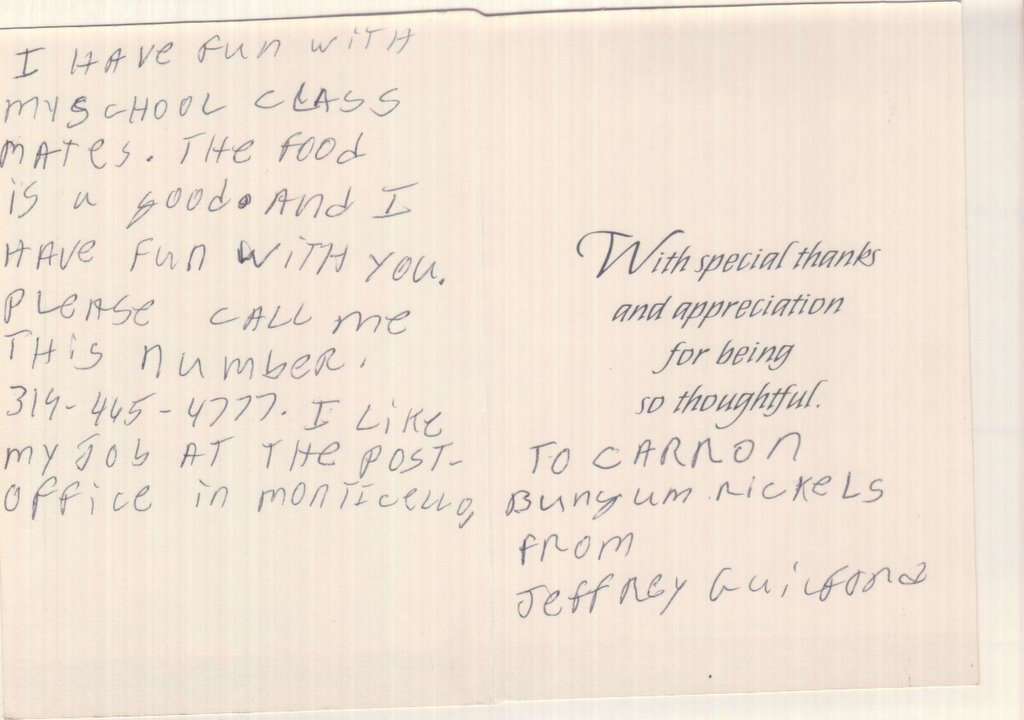 I HAVE FUN WITH
MY SCHOOL CLASS
MATES. THE FOOD
IS a good. AND I
HAVE FUN WITH YOU.
PLEASE CALL ME
THIS NUMBER.
319-465-4777. I LIKE
MY JOB AT THE POST-
OFFICE IN MONTICELLO,
With special thanks
and appreciation
for being
so thoughtful.
TO CARRON
BUNYUM NICKELS
FROM
JEFFREY GUILFORD